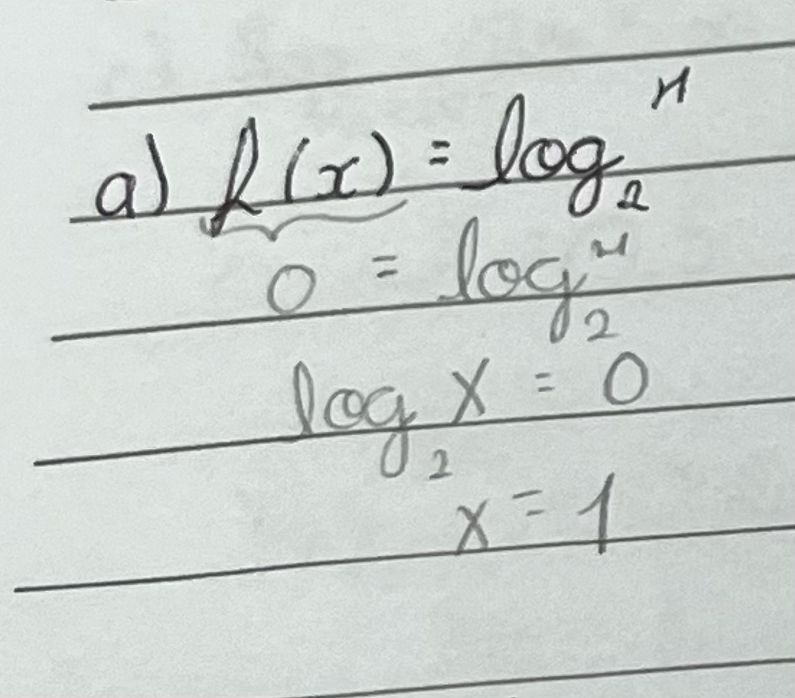 a) f(x) = log₂ x
0 = log₂ x
log₂ x = 0
x = 1